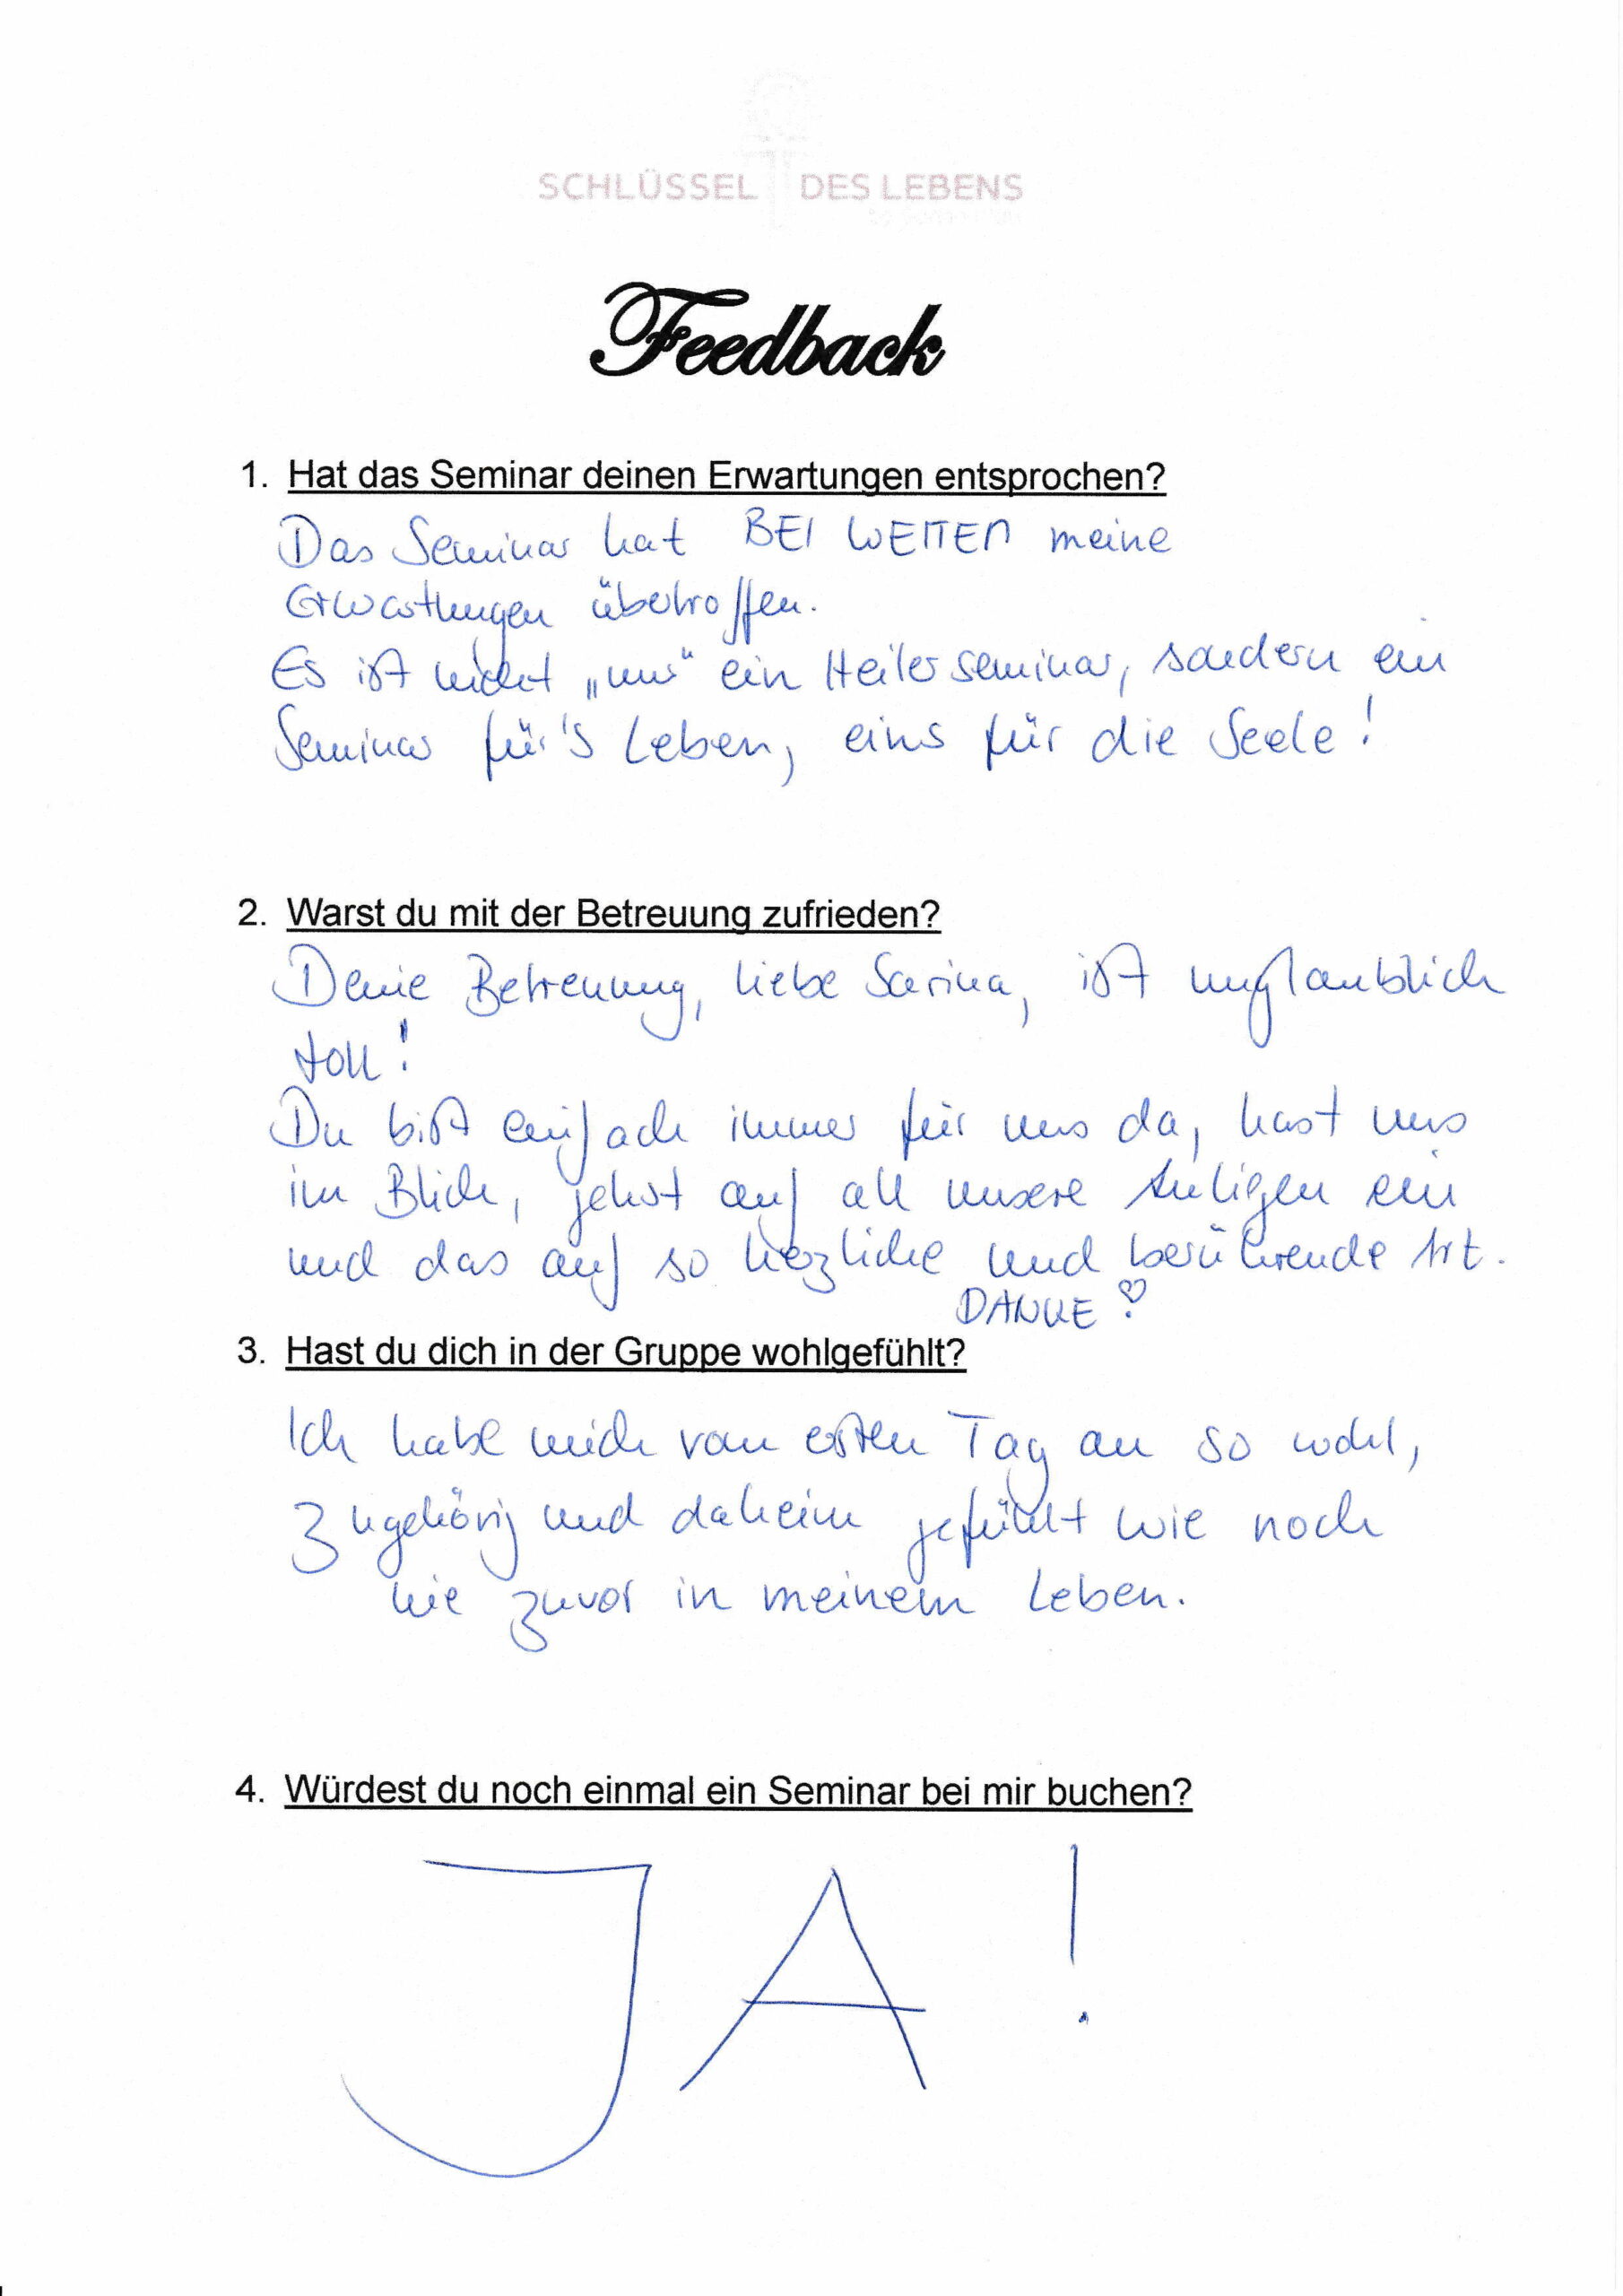 SCHLÜSSEL DES LEBENS
Feedback
1. Hat das Seminar deinen Erwartungen entsprochen?
Das Seminar hat BEI WEITEM meine
Erwartungen übertroffen.
Es ist nicht „nur“ ein Heilerseminar, sondern ein
Seminar für's Leben, eins für die Seele!
2. Warst du mit der Betreuung zufrieden?
Deine Betreuung, liebe Sarina, ist unglaublich
toll!
Du bist einfach immer für uns da, hast uns
im Blick, gehst auf all unsere Anliegen ein
und das auf so herzliche und berührende Art.
DANKE ♡
3. Hast du dich in der Gruppe wohlgefühlt?
Ich habe mich vom ersten Tag an so wohl,
zugehörig und daheim gefühlt wie noch
nie zuvor in meinem Leben.
4. Würdest du noch einmal ein Seminar bei mir buchen?
JA!